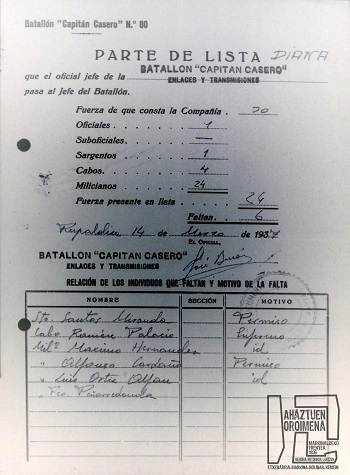 Batallón "Capitán Casero" N.º 80
PARTE DE LISTA DIANA
que el oficial jefe de la BATALLON "CAPITAN CASERO"
ENLACES Y TRANSMISIONES
pasa al Jefe del Batallón.
Fuerza de que consta la Compañía . 30
Oficiales . . . . . . 1
Suboficiales . . . . . —
Sargentos . . . . . . 1
Cabos . . . . . . . 4
Milicianos . . . . . 24
Fuerza presente en lista . . . . 24
Faltan . . 6
14 de Marzo de 1937
EL OFICIAL,
BATALLON "CAPITAN CASERO"
ENLACES Y TRANSMISIONES
José
RELACIÓN DE LOS INDIVIDUOS QUE FALTAN Y MOTIVO DE LA FALTA
NOMBRE SECCIÓN MOTIVO
Sto. Santos Miranda Permiso
Cabo Ramiro Palacio Enfermo
Milº Maximo Hernandez id
" Alfonso Permiso
" Luis id
" Fco. Peñarredonda
AHAZTUEN
OROIMENA
1936
ETXEBARRIA-MARKINA-BOLIBAR-XEMEIN